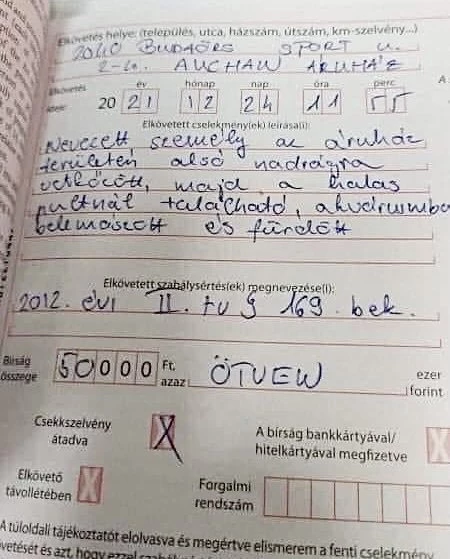 Elkövetés helye: (település, utca, házszám, útszám, km-szelvény...)
2040 BUDAÖRS SPORT u.
2-4. AUCHAN ÁRUHÁZ
Elkövetés ideje: év hónap nap óra perc
20 21 12 24 11 55
Elkövetett cselekmény(ek) leírása(i):
Nevezett személy az áruház
területén alsó nadrágra
vetkőzött, majd a halas
pultnál található, akváriumba
belemászott és fürdött
Elkövetett szabálysértés(ek) megnevezése(i):
2012. évi II. tv § 169. bek.
Bírság összege 50000 Ft, azaz ÖTVEN ezer forint
Csekkszelvény átadva X
A bírság bankkártyával/ hitelkártyával megfizetve X
Elkövető távollétében X
Forgalmi rendszám
A túloldali tájékoztatót elolvasva és megértve elismerem a fenti cselekmény